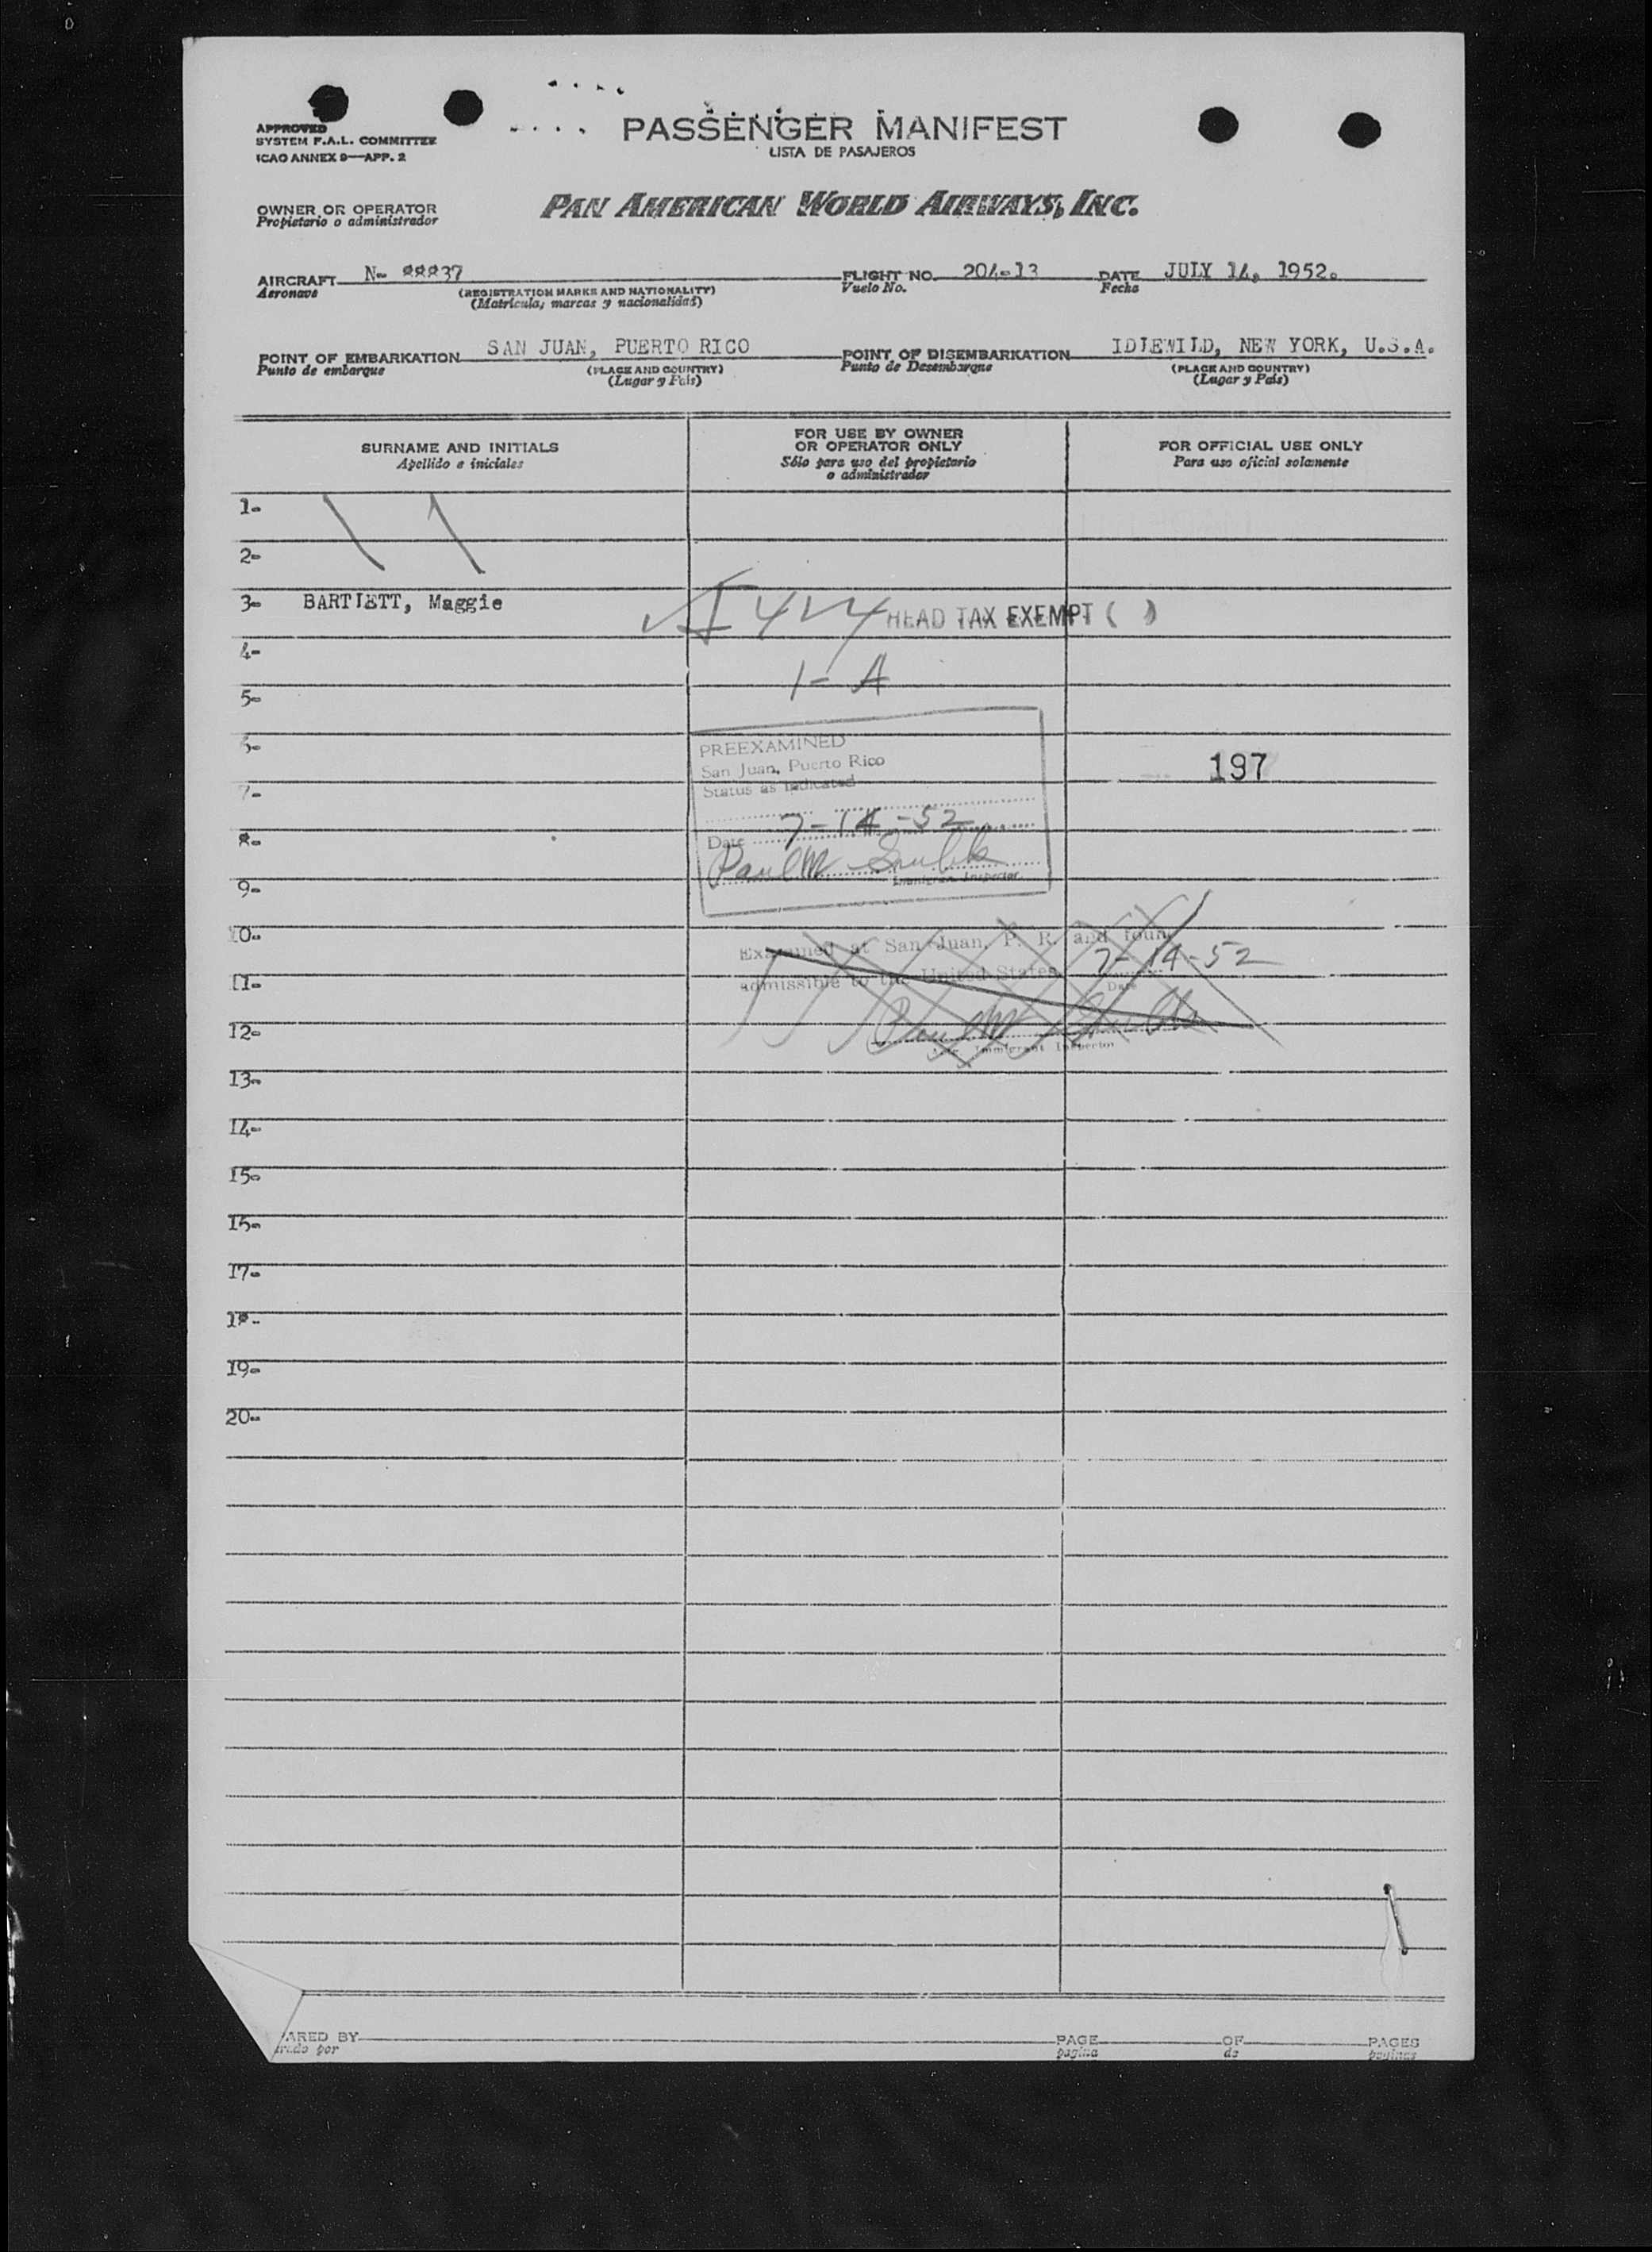 APPROVED
SYSTEM F.A.L. COMMITTEE
ICAO ANNEX 9—APP. 2
PASSENGER MANIFEST
LISTA DE PASAJEROS
OWNER OR OPERATOR
Propietario o administrador
PAN AMERICAN WORLD AIRWAYS, INC.
AIRCRAFT N- 88837 FLIGHT NO. 204-13 DATE JULY 14, 1952.
Aeronave (REGISTRATION MARKS AND NATIONALITY) Vuelo No. Fecha
(Matrícula, marcas y nacionalidad)
POINT OF EMBARKATION SAN JUAN, PUERTO RICO POINT OF DISEMBARKATION IDLEWILD, NEW YORK, U.S.A.
Punto de embarque (PLACE AND COUNTRY) Punto de Desembarque (PLACE AND COUNTRY)
(Lugar y País) (Lugar y País)
SURNAME AND INITIALS FOR USE BY OWNER OR OPERATOR ONLY FOR OFFICIAL USE ONLY
Apellido e iniciales Sólo para uso del propietario o administrador Para uso oficial solamente
1-
2-
3- BARTLETT, Maggie HEAD TAX EXEMPT ( )
4-
1-A
5-
6- PREEXAMINED
San Juan, Puerto Rico 197
7- Status as indicated
Date 7-14-52
8-
Paul M
Immigrant Inspector
9-
10- Examined at San Juan, P. R. and foun
7-14-52
11- admissible to the United States Date
12- Paul M
Immigrant Inspector
13-
14-
15-
16-
17-
18-
19-
20-
ARED BY PAGE OF PAGES
rado por página de páginas